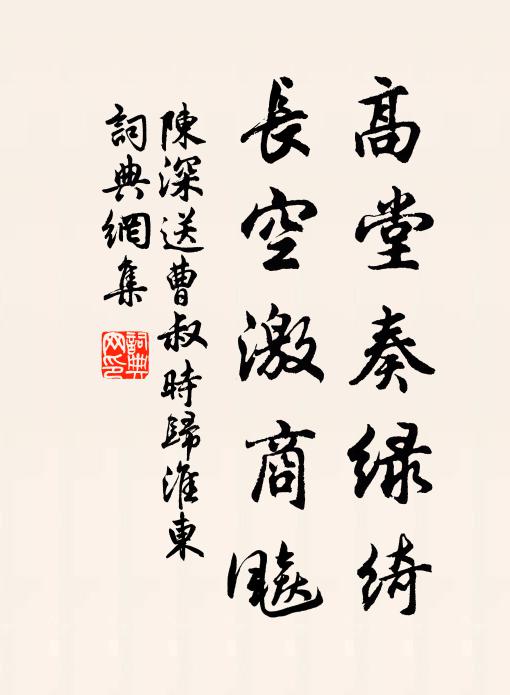 高堂奏綠綺
長空激商飈
陳深送曹叔時歸淮東
詞典網集
詞典
网印